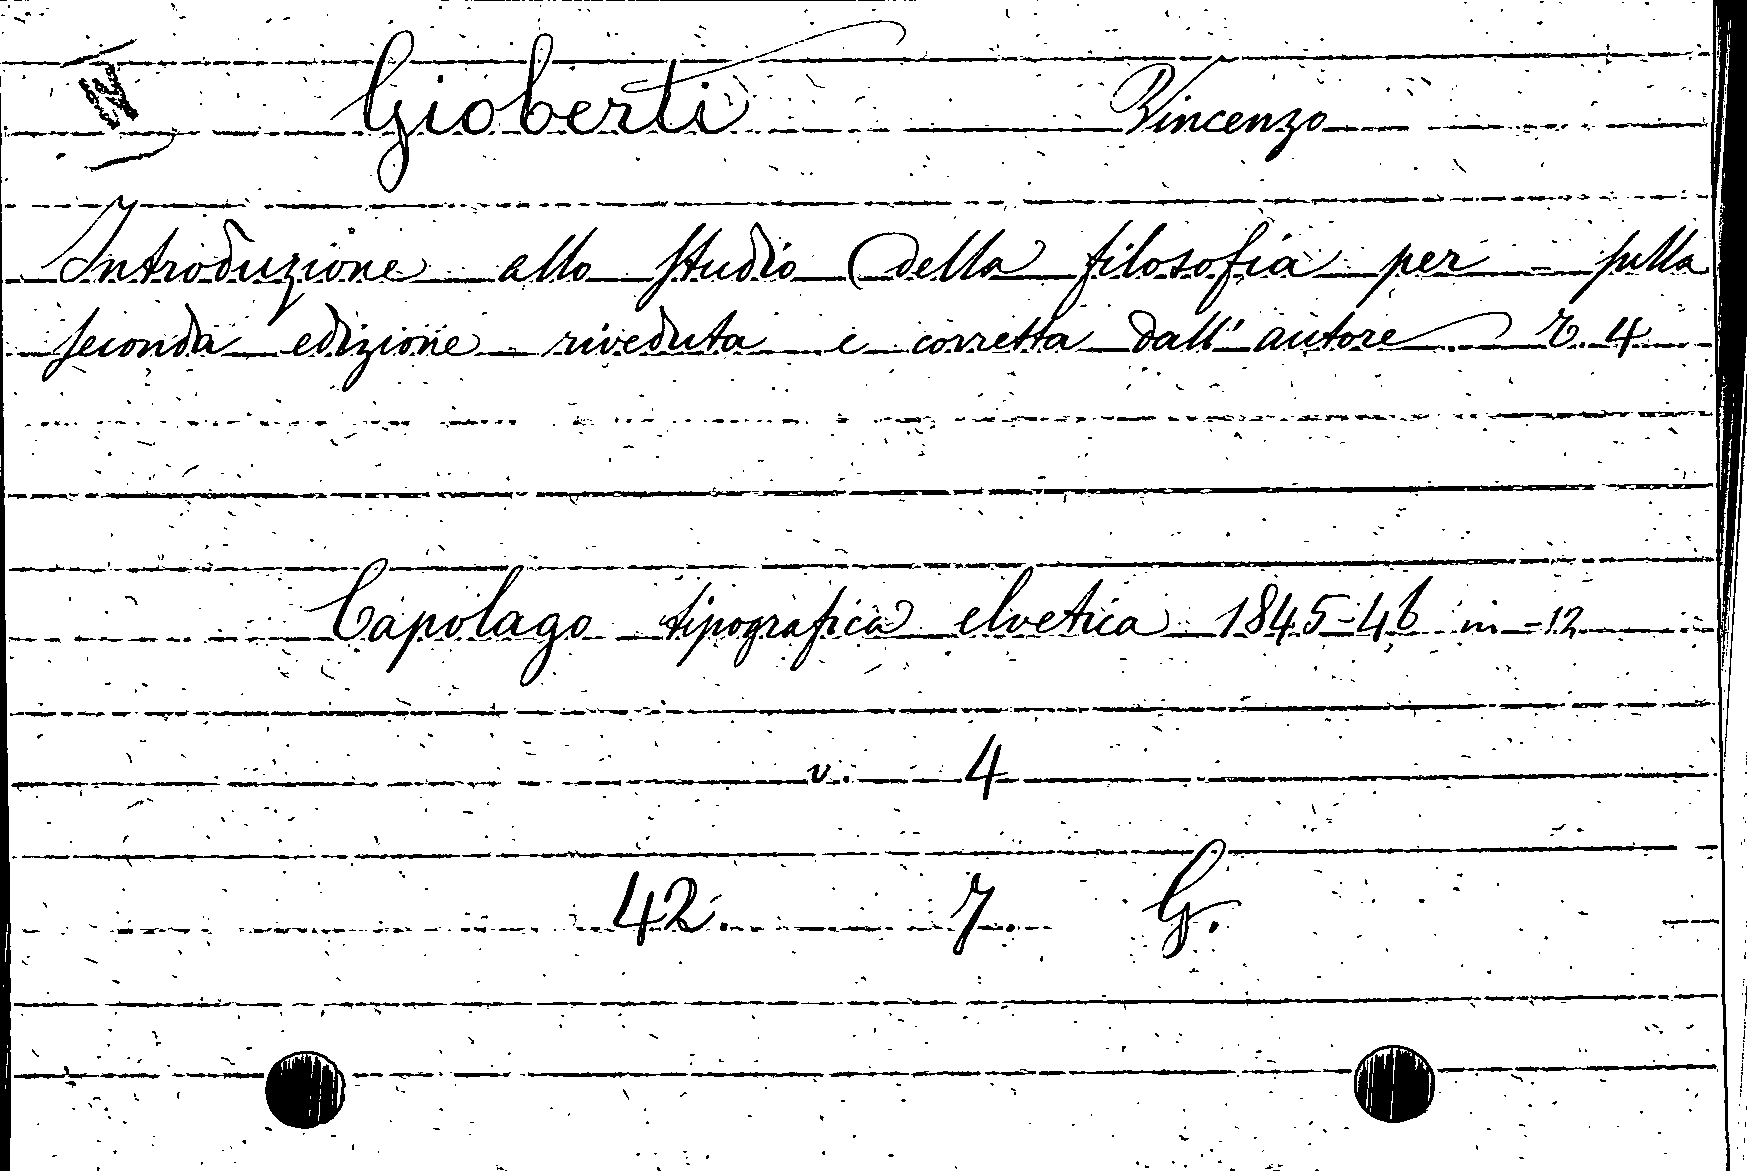 Gioberti Vincenzo
Introduzione allo studio della filosofia per - sulla
seconda edizione riveduta e corretta dall'autore. T. 4
Capolago tipografica elvetica 1845-46 in-12
v. 4
42. 7. G.